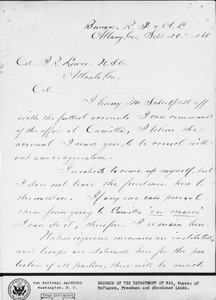 Bureau R. F. & A. L.
Albany Ga. Sept. 20" 1868
Col. J. R. Lewis, U.S.A
Atlanta Ga.
Col.
I hurry Mr. Schlotfeldt off
with the fullest accounts I can command
of the affair at Camilla, I believe the
account I send you, to be correct without
any exaggeration.
I wished to come up myself, but
I do not leave the freedmen here to
themselves. If any one can prevent
them from going to Camilla "en masse"
I can do it, therefore I remain here.
Unless vigorous measures are instituted,
and troops are stationed here for the pro-
tection of all parties, there will be much
THE NATIONAL ARCHIVES
Washington, D. C.
RECORDS OF THE DEPARTMENT OF WAR, Bureau of
Refugees, Freedmen and Abandoned Lands.